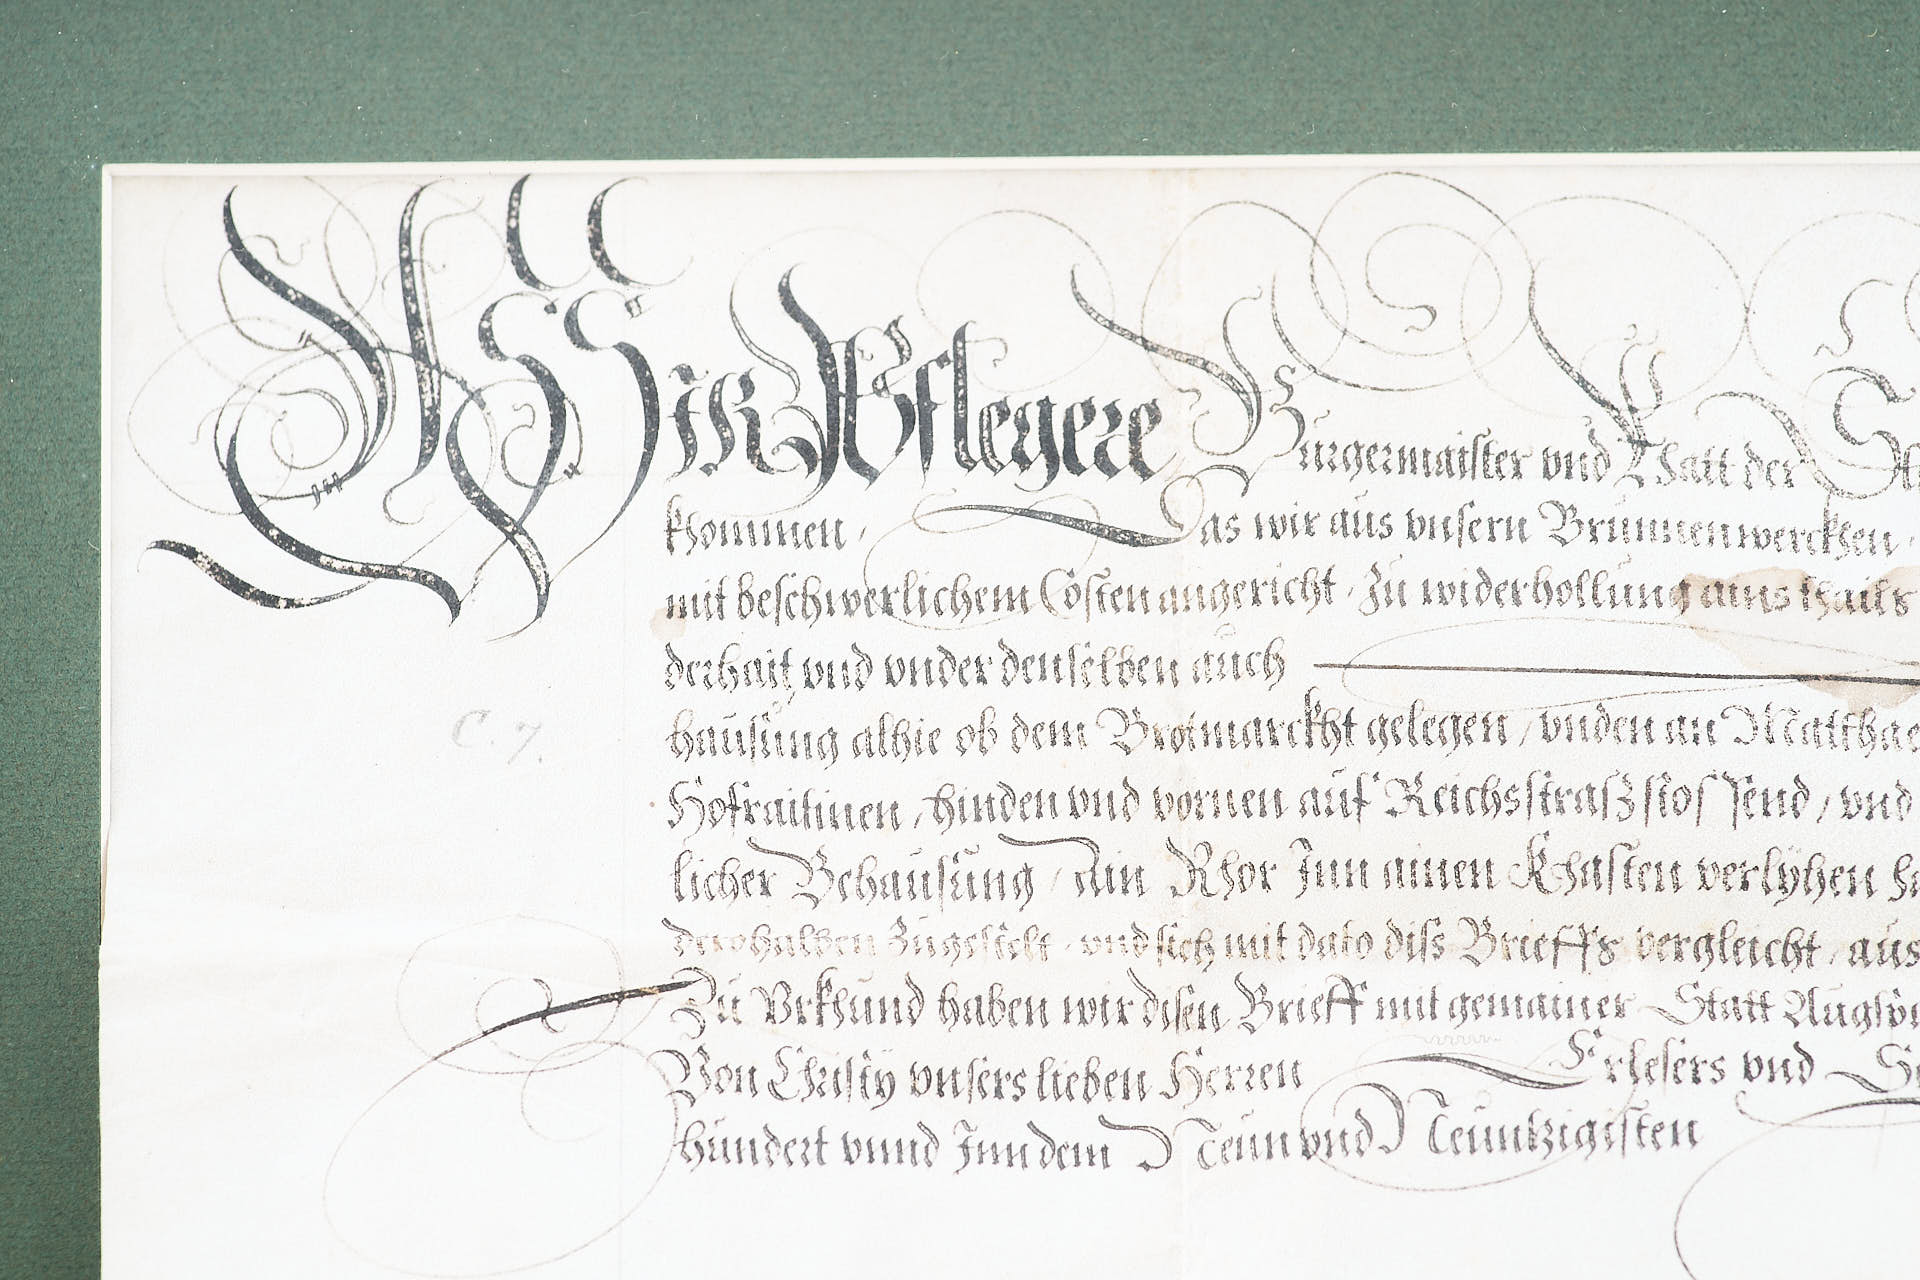 Wir Pflegere Burgermaister vnd Ratt der
khommen, Das wir aus vnsern Brunnenwerckhen,
mit beschwerlichem Cósten angericht, Zu widerhollung ains thails
derhait vnd vnder denselben auch
C. 7.
hausung alhie ob dem Brotmarckht gelegen / vnden an Matthae
Hofraitinen, hinden vnd vornen auf Reichsstrasz stos send / vnd
licher Behausung / ain Rhor Inn ainen Khasten verlyhen ha
derohalben Zugestelt, vnd sich mit dato diss Brieffs vergleicht, aus
Zu Vrkhund haben wir disen Brieff mit gemainer Statt Augsbu
Von Christy vnsers lieben Herren Erlesers vnd Se
hundert vnnd Inn dem Neun vnd Neuntzigisten